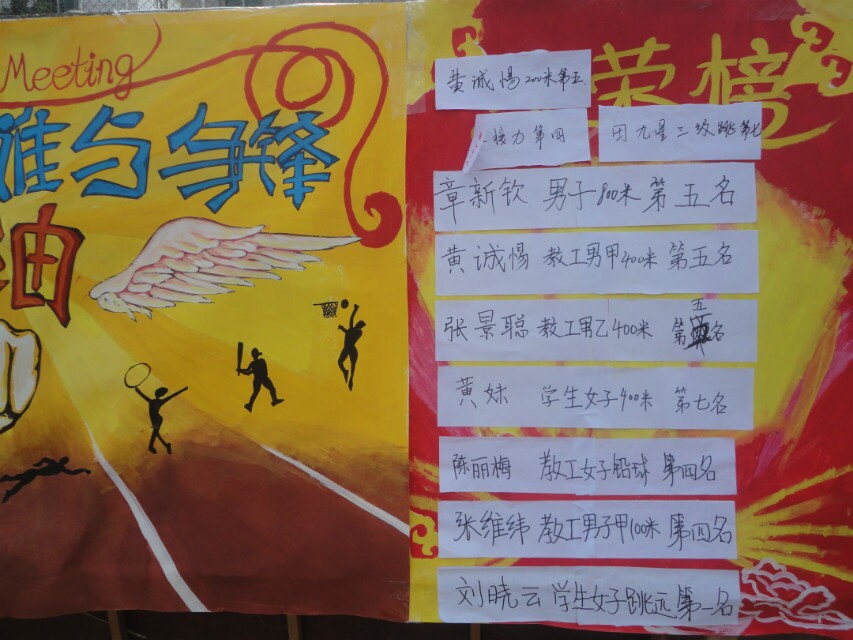 Meeting
谁与争锋
油
荣榜
黄诚惕200米第五
接力第四
田九星三级跳第七
章新钦 男子800米 第五名
黄诚惕 教工男甲400米 第五名
张景聪 教工男乙400米 第五名
黄妹 学生女子400米 第七名
陈丽梅 教工女子铅球 第四名
张维纬 教工男子甲100米 第四名
刘晓云 学生女子跳远 第一名